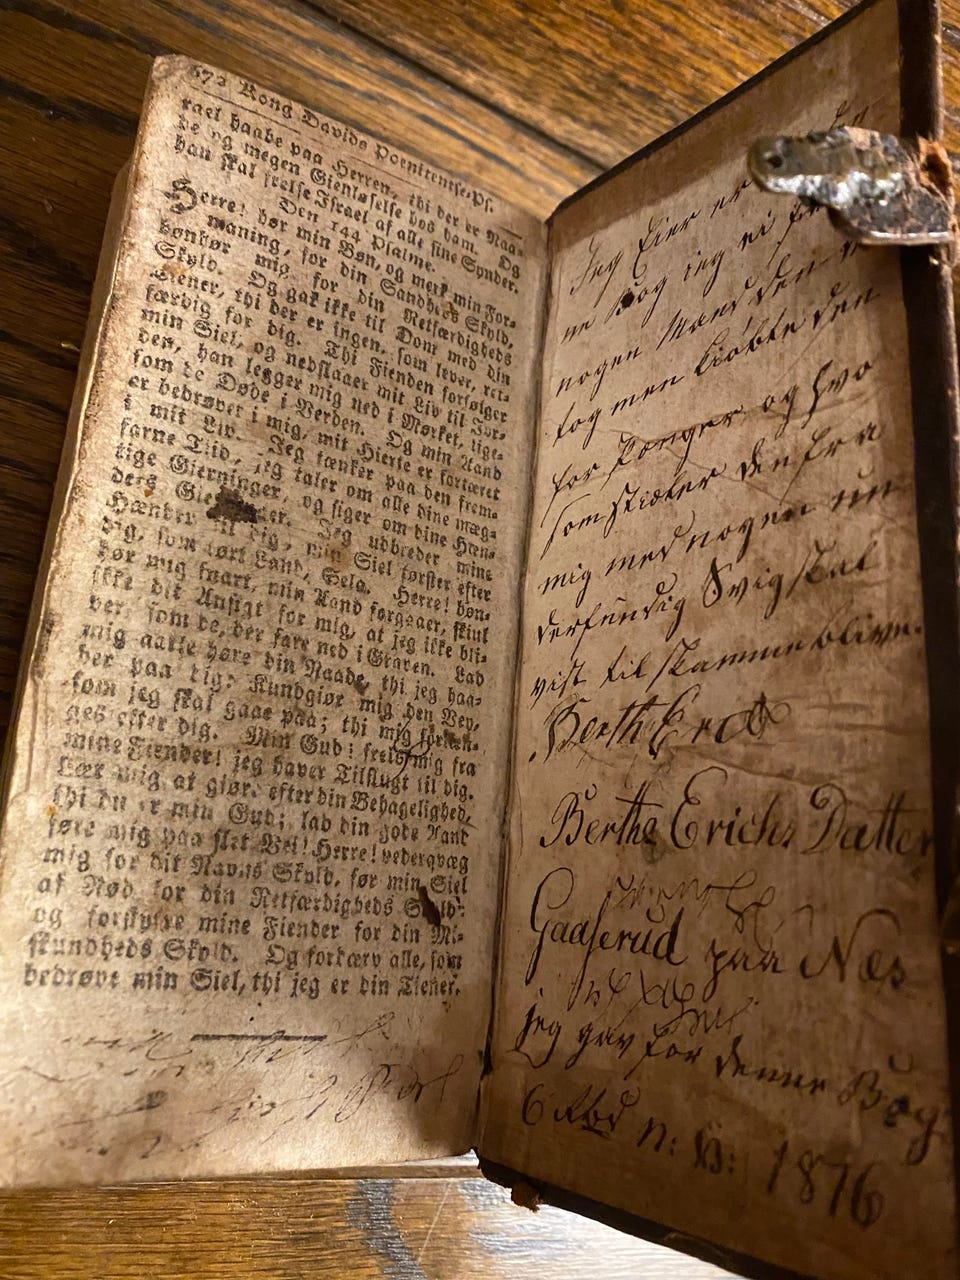 572 Kong Davids Poenitentse-Ps.
rael haabe paa Herren, thi der er Naa-
de og megen Gienløselse hos ham. Og
han skal frelse Israel af alle sine Synder.
Den 144 Psalme.
Herre! hør min Bøn, og merk min For-
maning, for din Sandheds Skyld,
bønhør mig for din Retfærdigheds
Skyld. Og gak ikke til Dom med din
Tiener, thi der er ingen, som lever, ret-
færdig for dig. Thi Fienden forfølger
min Siel, og nedslaaer mit Liv til Jor-
den, han legger mig ned i Mørket, lige-
som de Døde i Verden. Og min Aand
er bedrøvet i mig, mit Hierte er fortæret
i mit Liv. Jeg tænker paa den frem-
farne Tiid, jeg taler om alle dine mæg-
tige Gierninger, og siger om dine Hæn-
ders Jeg udbreder mine
Hænder til dig, min Siel tørster efter
dig, som tørt Land, Sela. Herre! bøn-
hør mig snart, min Aand forgaaer, skiul
ikke dit Ansigt for mig, at jeg ikke bli-
ver, som de, der fare ned i Graven. Lad
mig aarle høre din Naade, thi jeg haa-
ber paa dig: Kundgiør mig den Vey,
som jeg skal gaae paa; thi mig
ges efter dig. Min Gud! frels mig fra
mine Fiender! jeg haver Tilflugt til dig.
Lær mig at giøre efter din Behagelighed,
thi du er min Gud; lad din gode Aand
føre mig paa slet Vei! Herre! vederqvæg
mig for dit Navns Skyld, før min Siel
af Nød for din Retfærdigheds Skyld.
og forstyrre mine Fiender for din Mi-
skundheds Skyld. Og fordærv alle, som
bedrøve min Siel, thi jeg er din Tiener.
Jeg Eier er
ne Bog jeg ei
nogen Mand den
tog men kiøbte den
for Penger og hvo
som stiæler den fra
mig med nogen un
derfundig Svig skal
vist til skamme blive.
Berthe
Berthe Erichs Datter
Gaaserud paa Næs
jeg gav for denne Bog
6 Rbd n: V: 1876